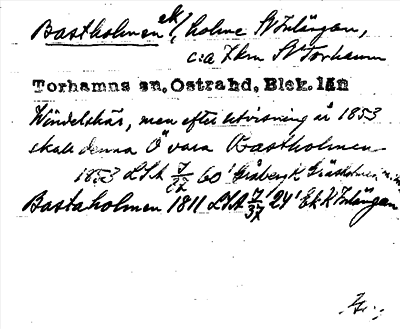 Bastholmen ek/, holme SV Inlängan,
c:a 7 km SV Torhamn
Torhamns sn, Östra hd, Blek. län
Windelskär, men efter utvisning år 1853
skall denna Ö vara Bastholmen
1853 LSA 7/22 60' Gråberg K Gräsholmen
Bastaholmen 1811 LSA 7/37 24' Ek K Inlängan